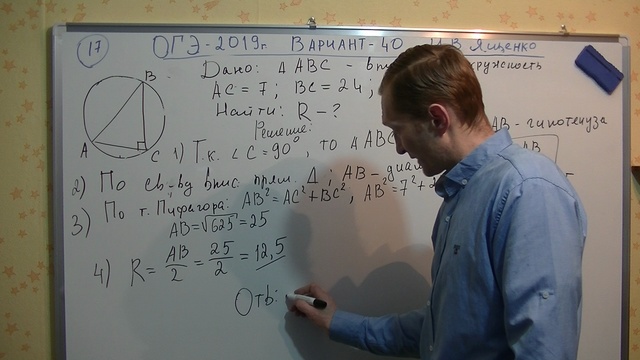 17 ОГЭ-2019г. ВАРИАНТ-40 И.В. Ященко
Дано: Δ ABC - впис
AC = 7; BC = 24;
Найти: R - ?
Решение:
B
A
C
1) Т.к. ∠C = 90°, то ΔABC AB - гипотенуза
2) По св-ву впис прям. Δ; AB - диам AB
3) По т. Пифагора: AB² = AC² + BC², AB² = 7² + 2
AB = √625 = 25
4) R = AB/2 = 25/2 = 12,5
Отв: